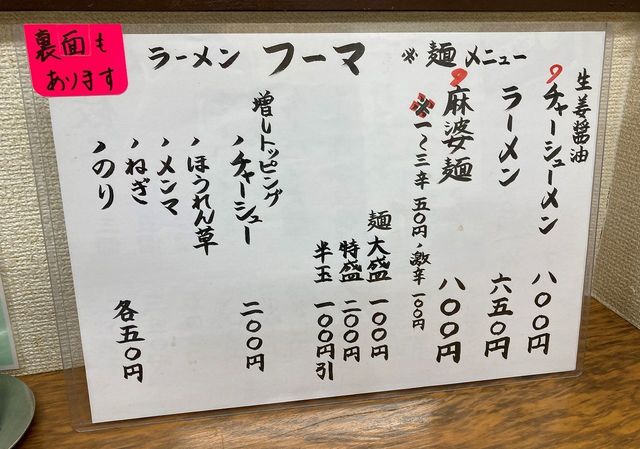 裏面も
あります
ラーメン フーマ
※ 麺 メニュー
生姜醤油
チャーシューメン 八〇〇円
ラーメン 六五〇円
麻婆麺 八〇〇円
※一〜三辛 五〇円、激辛 一〇〇円
麺 大盛 一〇〇円
特盛 二〇〇円
半玉 一〇〇円引
増しトッピング
、チャーシュー 二〇〇円
、ほうれん草
、メンマ
、ねぎ
、のり
各五〇円